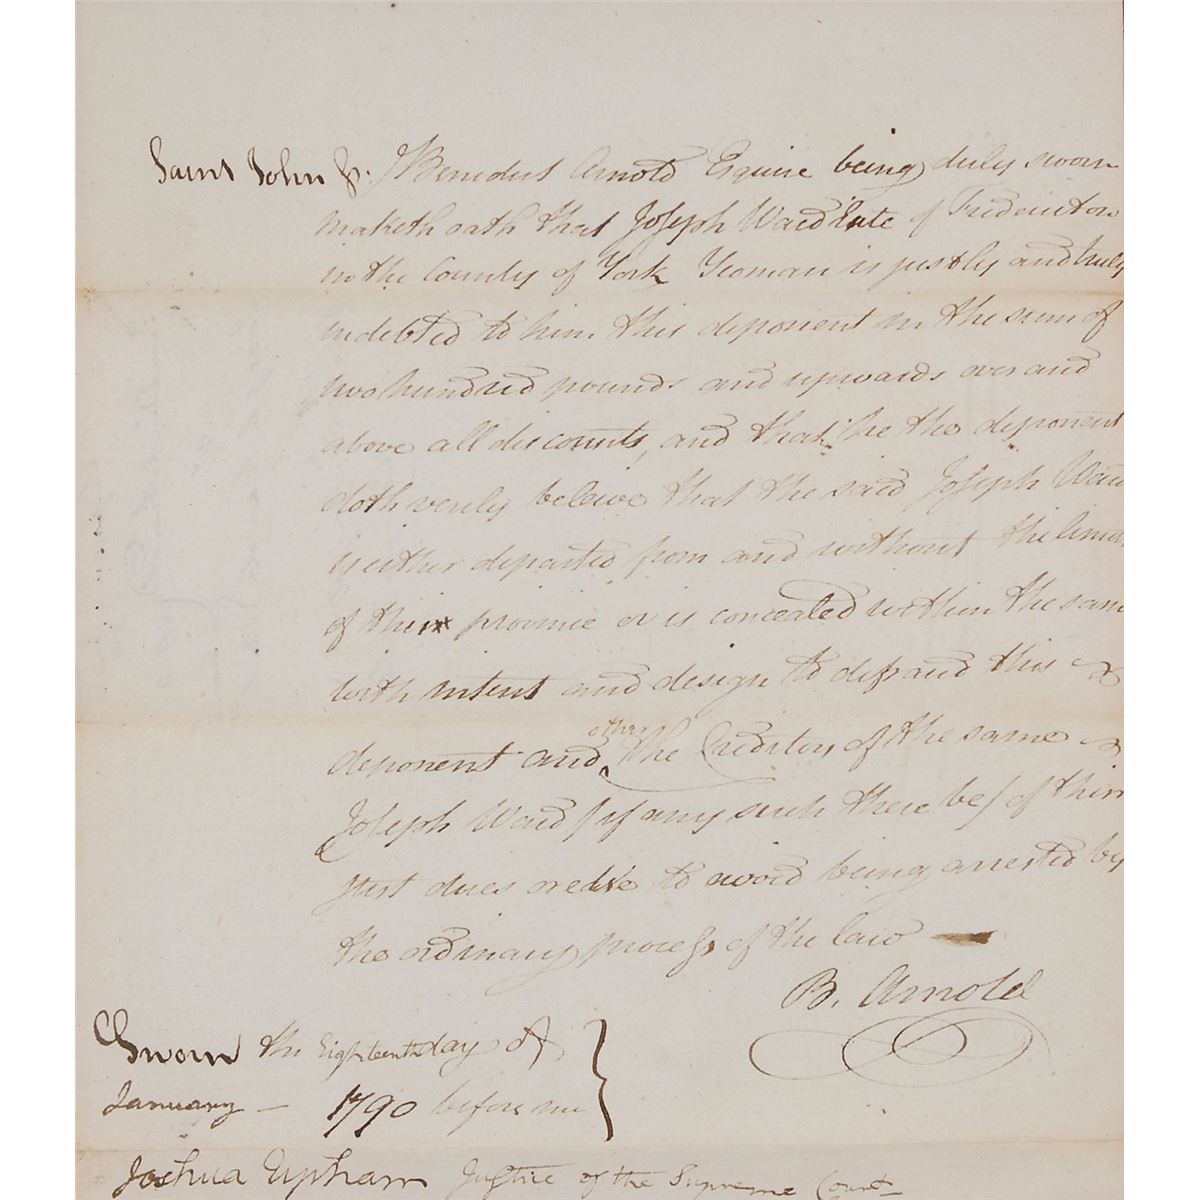 Saint John Ss. Benedict Arnold Esquire being duly sworn
maketh oath that Joseph Ward late of Fredericton
in the County of York Yeoman is justly and truly
indebted to him this deponent in the sum of
two hundred pounds and upwards over and
above all discounts, and that he the deponent
doth verily beleive that the said Joseph Ward
is either departed from and without the limits
of this province or is concealed within the same
with intent and design to defraud this
other
deponent and the Creditors of the same
Joseph Ward /if any such there be/ of their
just dues or else to avoid being arrested by
the ordinary process of the law
B. Arnold
Sworn the Eighteenth day of
January 1790 before me
Joshua Upham Justice of the Supreme Court